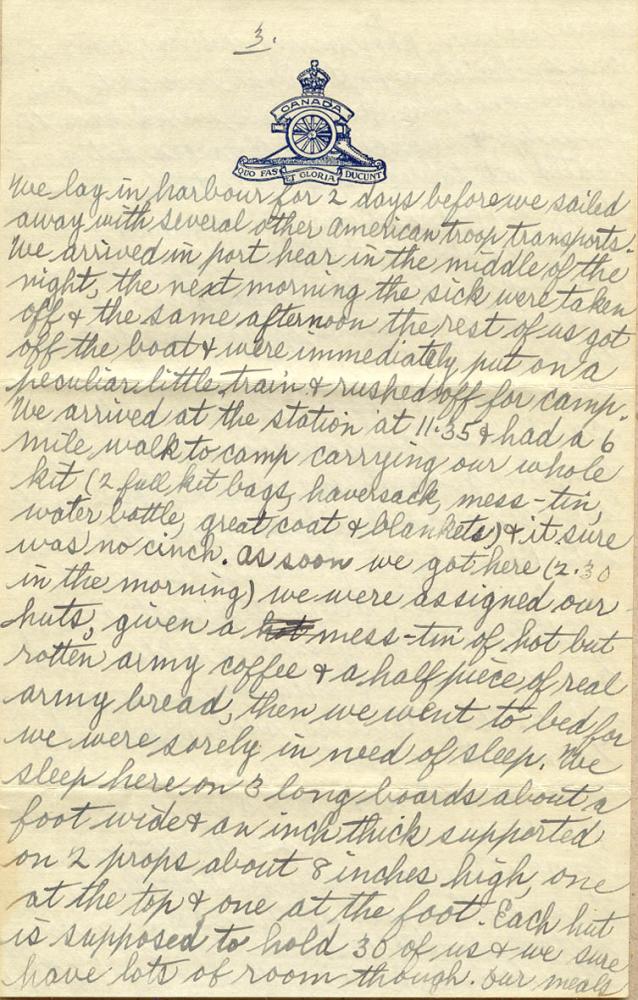 3.
CANADA
QUO FAS ET GLORIA DUCUNT
We lay in harbour for 2 days before we sailed
away with several other american troop transports.
We arrived in port hear in the middle of the
night, the next morning the sick were taken
off & the same afternoon the rest of us got
off the boat & were immediately put on a
peculiar little train & rushed off for camp.
We arrived at the station at 11.35 & had a 6
mile walk to camp carrying our whole
kit (2 full kit bags, haversack, mess-tin,
water bottle, great coat & blankets) & it sure
was no cinch. as soon we got here (2.30
in the morning) we were assigned our
huts, given a mess-tin of hot but
rotten army coffee & a half piece of real
army bread, then we went to bed for
we were sorely in need of sleep. We
sleep here on 3 long boards about a
foot wide & an inch thick supported
on 2 props about 8 inches high, one
at the top & one at the foot. Each hut
is supposed to hold 30 of us & we sure
have lots of room though. Our meals